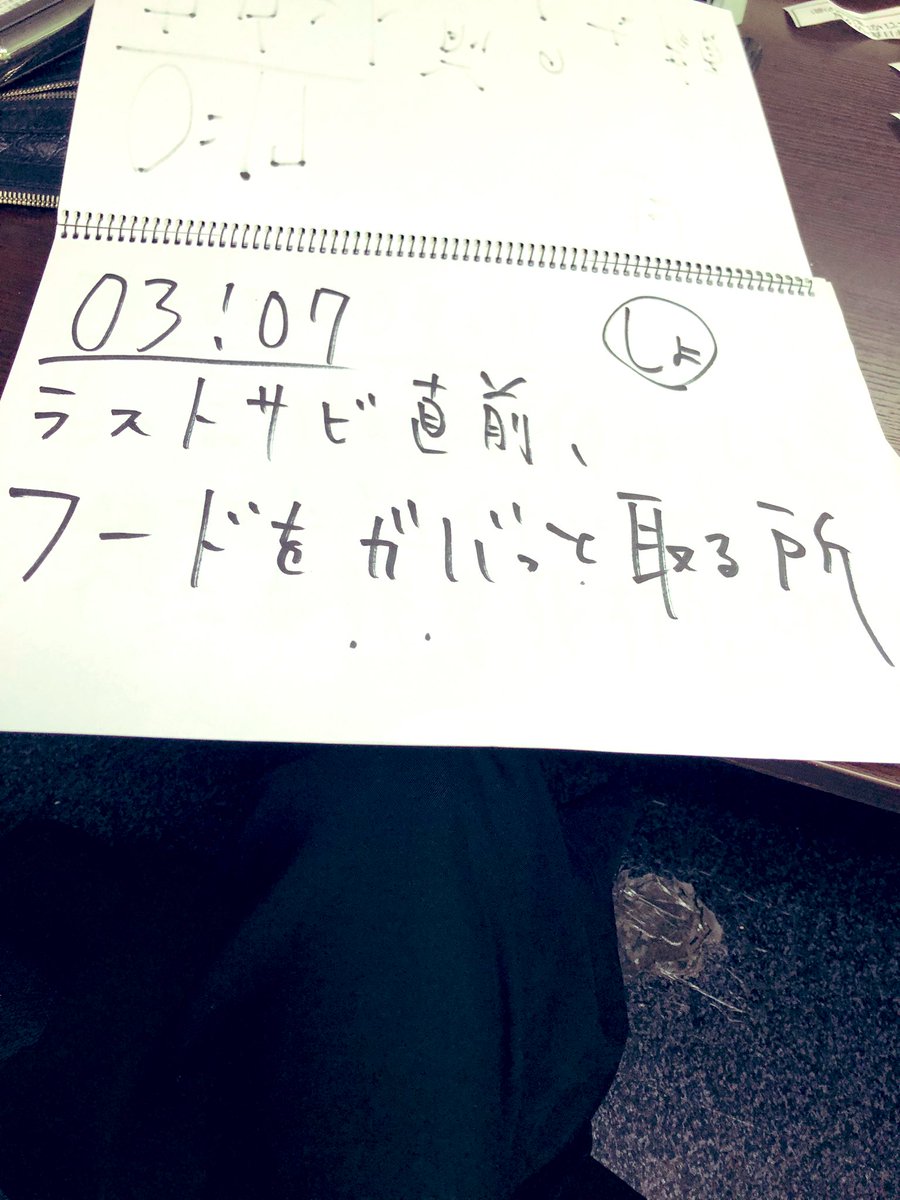 03:07
しょ
ラストサビ直前、
フードをガバっと取る所